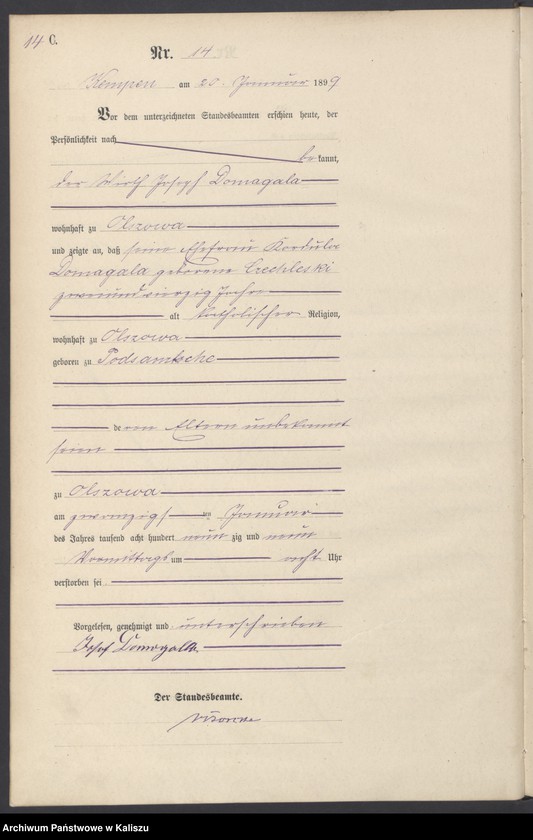 14 C.
Nr. 14
Kempen am 20. Januar 1899
Vor dem unterzeichneten Standesbeamten erschien heute, der
Persönlichkeit nach
bekannt,
der Wirth Joseph Domagala
wohnhaft zu Olszowa
und zeigte an, daß seine Ehefrau Kordula
Domagala geborene Czechleski
zweiundvierzig Jahre
alt katholischer Religion,
wohnhaft zu Olszowa
geboren zu Podsamtsche
deren Eltern unbekannt
seien
zu Olszowa
am zwanzigsten Januar
des Jahres tausend acht hundert neunzig und neun
Vormittags um acht Uhr
verstorben sei
Vorgelesen, genehmigt und unterschrieben
Josef Domagalla
Der Standesbeamte.
Archiwum Państwowe w Kaliszu